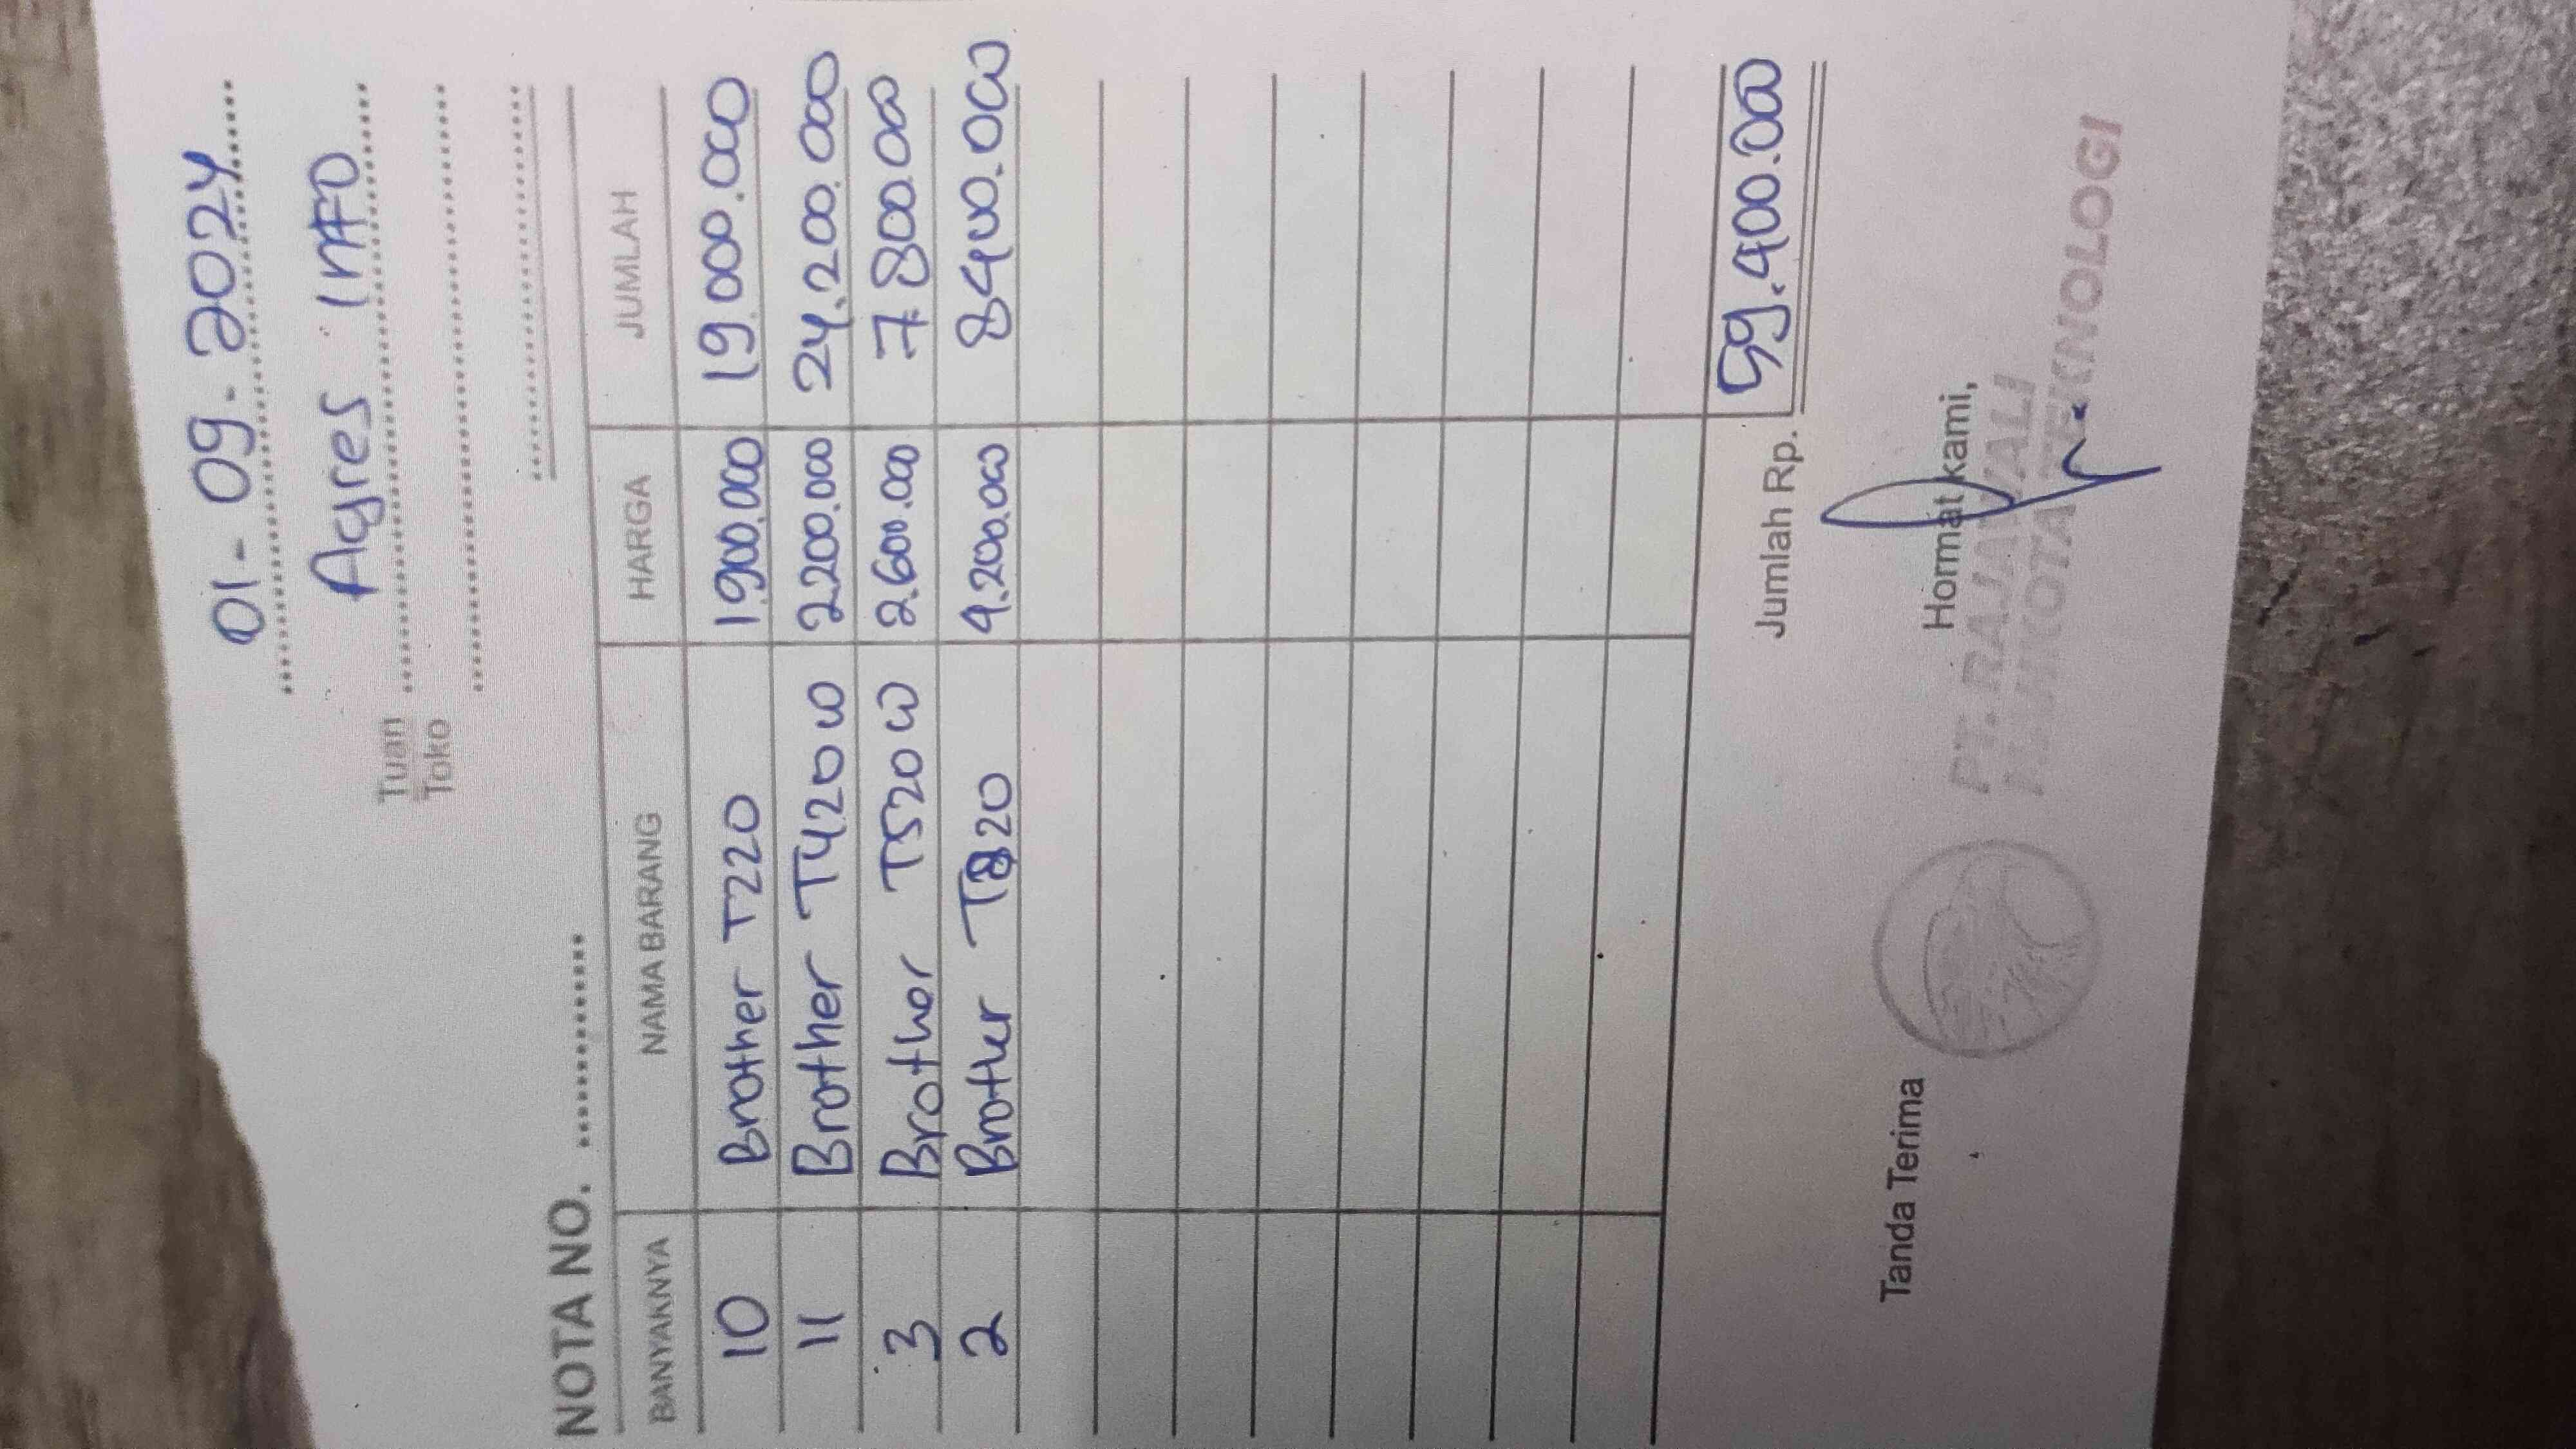 01 - 09 - 2024
Tuan Agres Info
Toko
NOTA NO.
BANYAKNYA NAMA BARANG HARGA JUMLAH
10 Brother T220 1.900.000 19.000.000
11 Brother T420 W 2.200.000 24.200.000
3 Brother T520 W 2.600.000 7.800.000
2 Brother T820 4.200.000 8.400.000
Jumlah Rp. 59.400.000
Tanda Terima Hormat kami,
PT. RAJAWALI
TEKNOLOGI